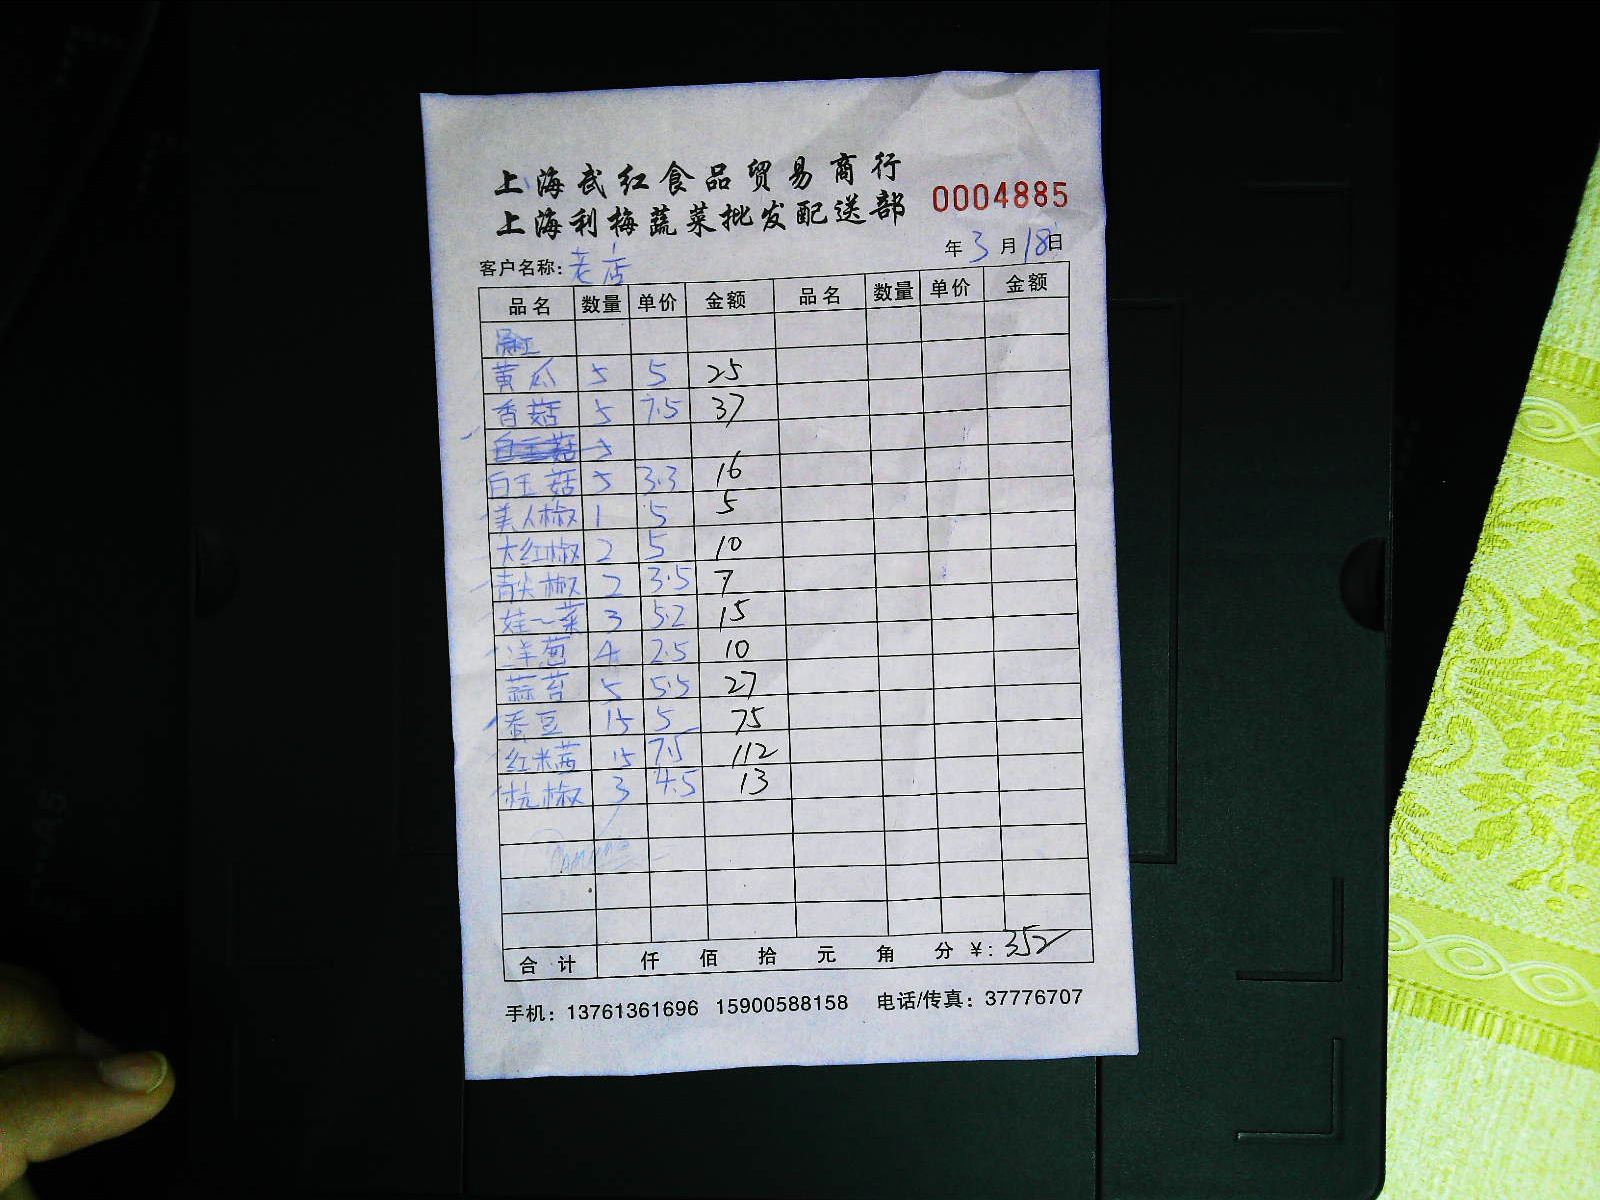 上海武红食品贸易商行
上海利梅蔬菜批发配送部
0004885
年3月18日
客户名称:老店
品名 数量 单价 金额 品名 数量 单价 金额
黄瓜 5 5 25
香菇 5 7.5 37
白玉菇 5
白玉菇 5 3.3 16
美人椒 1 5 5
大红椒 2 5 10
青尖椒 2 3.5 7
娃~菜 3 5.2 15
洋葱 4 2.5 10
蒜苔 5 5.5 27
豆 15 5 75
红米苋 15 7.5 112
杭椒 3 4.5 13
合计 仟 佰 拾 元 角 分 ¥:352
手机:13761361696 15900588158 电话/传真:37776707